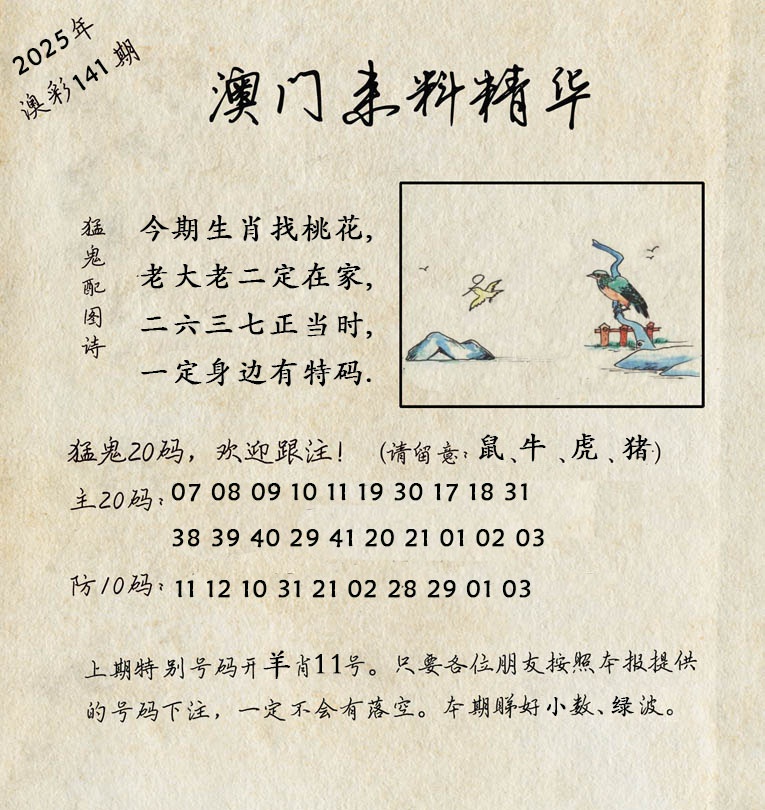 2025年
澳彩141期
澳门来料精华
猛鬼配图诗
今期生肖找桃花,
老大老二定在家,
二六三七正当时,
一定身边有特码.
猛鬼20码，欢迎跟注！（请留意：鼠、牛、虎、猪）
主20码：07 08 09 10 11 19 30 17 18 31
38 39 40 29 41 20 21 01 02 03
防10码：11 12 10 31 21 02 28 29 01 03
上期特别号码开羊肖11号。只要各位朋友按照本报提供
的号码下注，一定不会有落空。本期睇好小数、绿波。